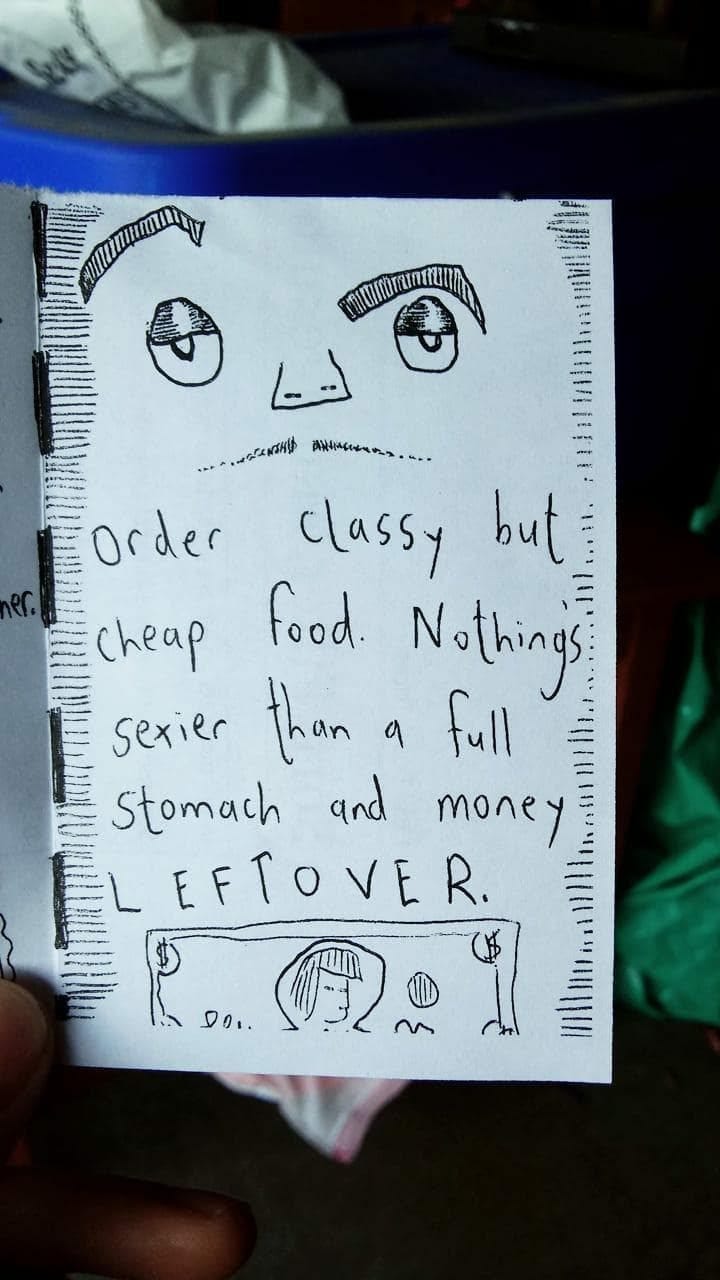 Order classy but
cheap food. Nothing's
sexier than a full
stomach and money
LEFTOVER.
$ $
ner.